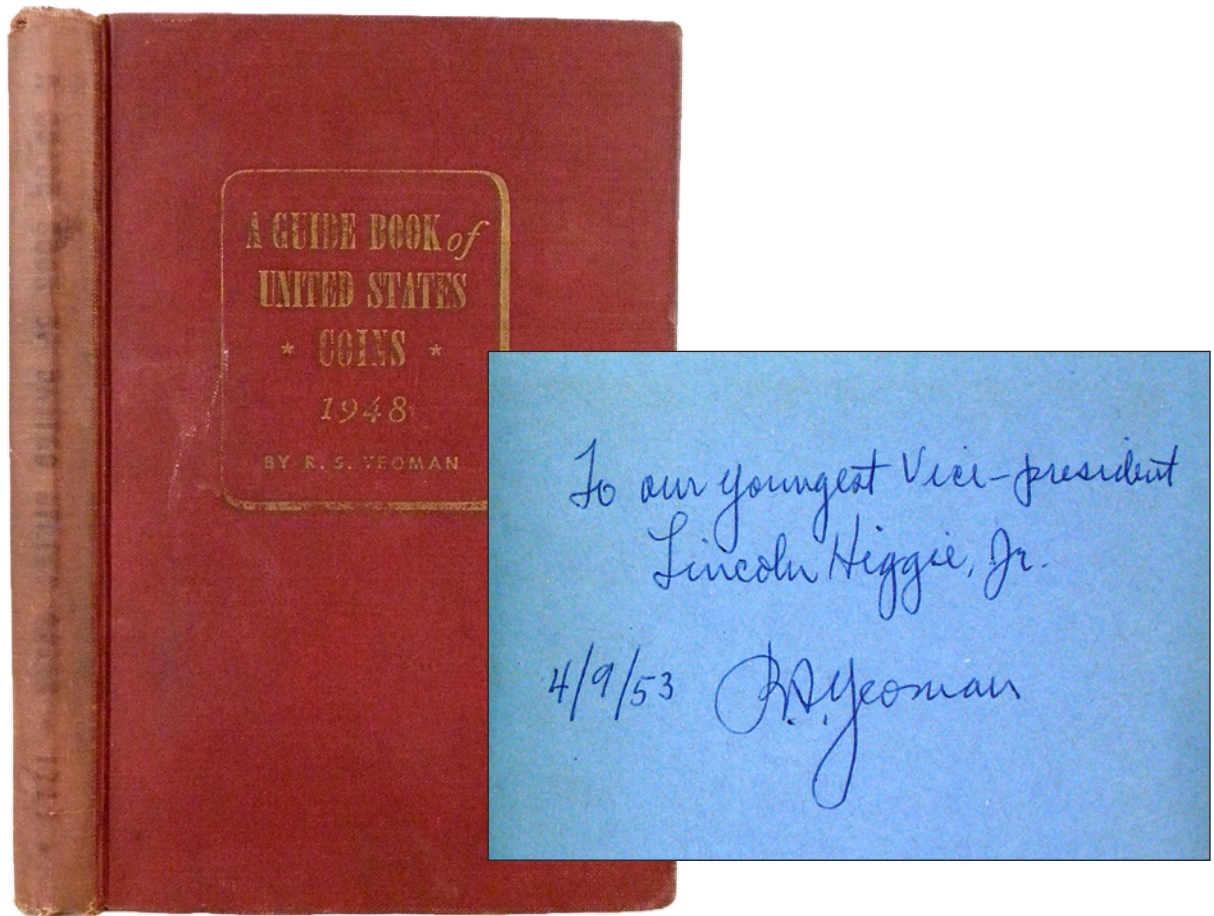 A GUIDE BOOK of
UNITED STATES
* COINS *
1948
BY R. S. YEOMAN
To our youngest Vice-president
Lincoln Higgie, Jr.
4/9/53 R.S. Yeoman